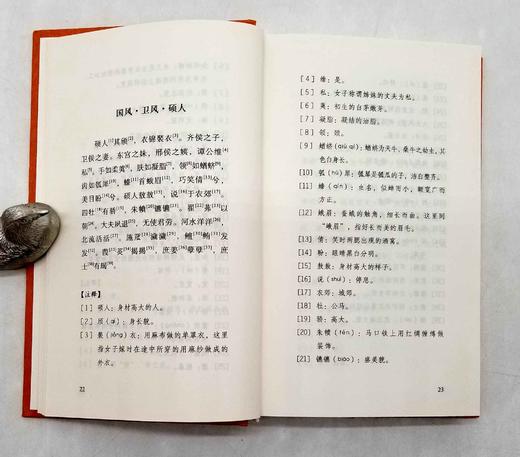 国风·卫风·硕人
硕人[1]其颀[2]，衣锦褧衣[3]。齐侯之子，
卫侯之妻。东宫之妹，邢侯之姨，谭公维[4]
私[5]。手如柔荑[6]，肤如凝脂[7]，领[8]如蝤蛴[9]，
齿如瓠犀[10]，螓[11]首蛾眉[12]，巧笑倩[13]兮，
美目盼[14]兮。硕人敖敖[15]，说[16]于农郊[17]。
四牡[18]有骄[19]，朱幩[20]镳镳[21]，翟茀以
朝。大夫夙退，无使君劳。河水洋洋，
北流活活。施罛濊濊，鳣鲔发
发。葭菼揭揭，庶姜孽孽，庶
士有朅。
【注释】
[1] 硕人：身材高大的人。
[2] 颀（qí）：身长貌。
[3] 褧（jiǒng）衣：用麻布做的单罩衣。这里
指女子嫁时在途中所穿的用麻纱做成的
外衣。
22
[4] 维：是。
[5] 私：女子称谓姊妹的丈夫为私。
[6] 荑：初生的白茅嫩芽。
[7] 凝脂：凝结的油脂。
[8] 领：颈。
[9] 蝤蛴（qiú qí）：蝤蛴为天牛、桑牛之幼虫，其
色白身长。
[10] 瓠（hù）犀：瓠犀是瓠瓜的子，洁白整齐。
[11] 螓（qín）：虫名，似蝉而小，额宽广而
方正。
[12] 蛾眉：蚕蛾的触角，细长而曲。这里到
“蛾眉”，指好长而美的眉毛。
[13] 倩：笑时两腮出现的酒窝。
[14] 盼：眼睛黑白分明。
[15] 敖敖：身材高大的样子。
[16] 说（shuì）：停息。
[17] 农郊：城郊。
[18] 牡：公马。
[19] 骄：高大。
[20] 朱幩（fén）：马口铁上用红绸缠缚做
装饰。
[21] 镳镳（biāo）：盛美貌。
23